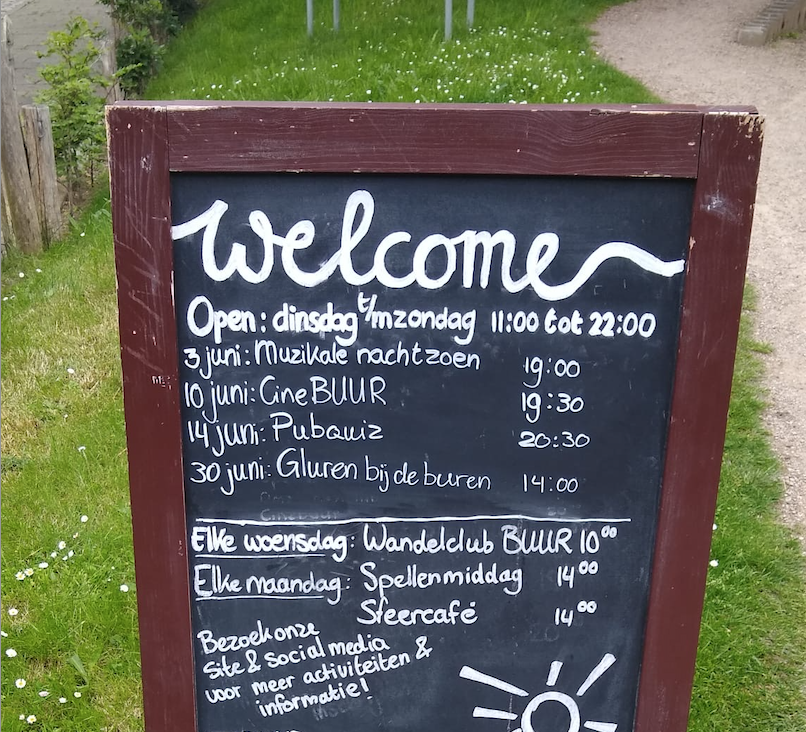 welcome
Open: dinsdag t/m zondag 11:00 tot 22:00
3 juni: Muzikale nachtzoen 19:00
10 juni: CineBUUR 19:30
14 juni: Pubquiz 20:30
30 juni: Gluren bij de buren 14:00
Elke woensdag: Wandelclub BUUR 10⁰⁰
Elke maandag: Spellenmiddag 14⁰⁰
Sfeercafé 14⁰⁰
Bezoek onze
site & social media
voor meer activiteiten &
informatie!